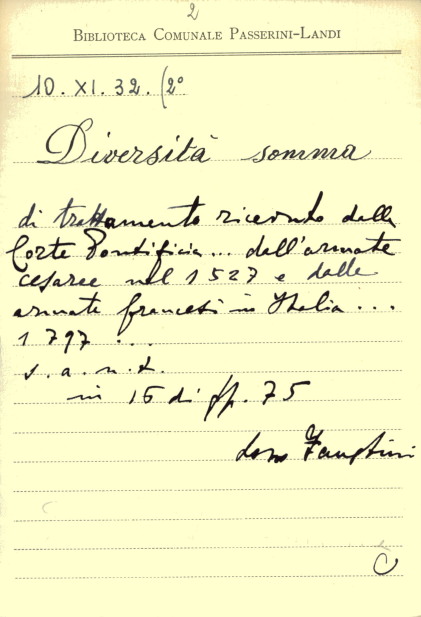 2
BIBLIOTECA COMUNALE PASSERINI-LANDI
10. XI. 32. (2°
Diversità somma
di trattamento ricevuto dalla
Corte Pontificia... dall'armate
cesaree nel 1527 e dalle
armate francesi in Italia...
1797...
s. a. n. t.
in 16 di pp. 75
C